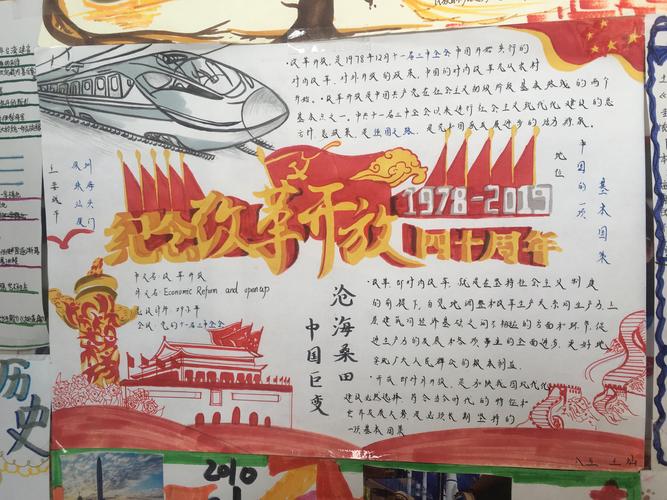 ·改革开放,是1978年12月十一届三中全会中国开始实行的
对内改革、对外开放的政策。中国的对内改革先从农村
开始。·改革开放是中国共产党在社会主义初级阶段基本路线的两个
基本点之一。中共十一届三中全会以来进行社会主义现代化建设的总
方针总政策,是强国之路,是党和国家发展进步的活力源泉。
主要城市
深圳
珠海
汕头
厦门
地位
中国的一项
基本国策
纪念改革开放
1978-2019
四十周年
中文名:改革开放
外文名:Economic Reform and open up
总设计师:邓小平
会议:党的十一届三中全会
沧海桑田
中国巨变
·改革 即对内改革,就是在坚持社会主义制度
的前提下,自觉地调整和改革生产关系同生产力,上
层建筑同经济基础之间不相适应的方面和环节,促
进生产力的发展和各项事业的全面进步,更好地
实现广大人民群众的根本利益。
·开放 即对外开放,是加快我国现代化
建设必然选择,符合当今时代的特征和
世界发展大势,是必须长期坚持的
一项基本国策
历史
2010